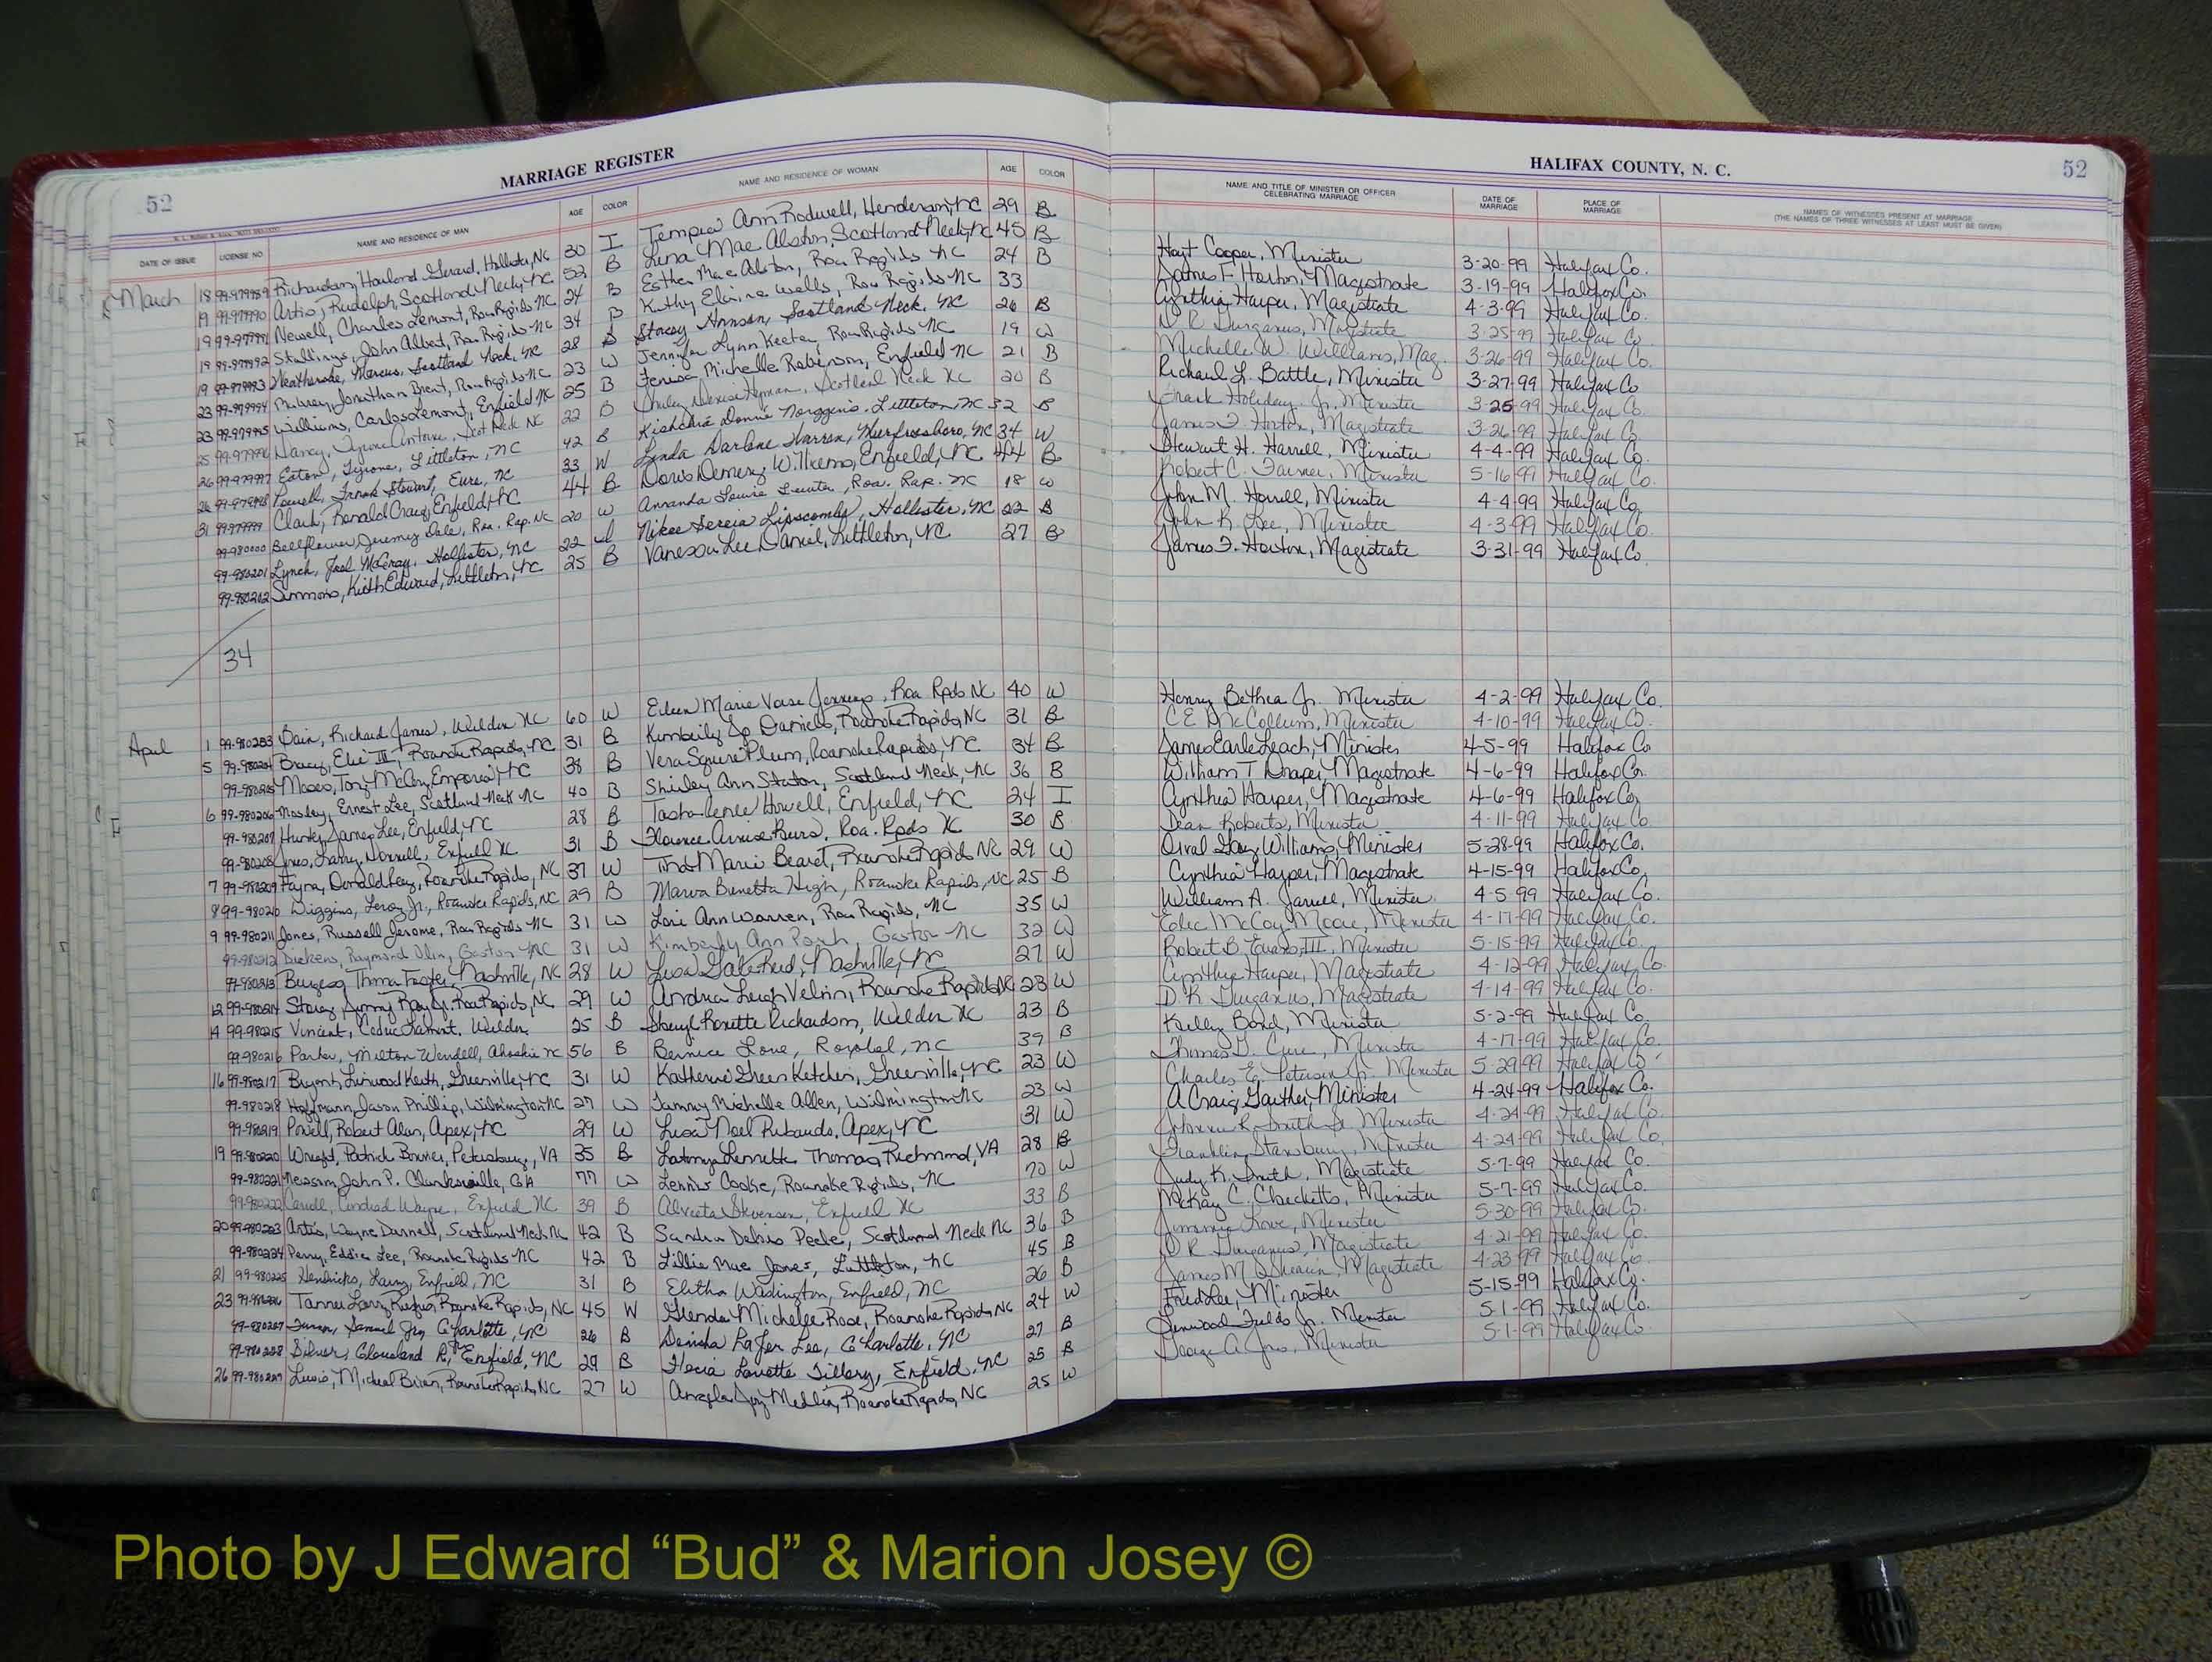 52
MARRIAGE REGISTER
HALIFAX COUNTY, N. C.
52
DATE OF ISSUE LICENSE NO. NAME AND RESIDENCE OF MAN AGE COLOR NAME AND RESIDENCE OF WOMAN AGE COLOR NAME AND TITLE OF MINISTER OR OFFICER CELEBRATING MARRIAGE DATE OF MARRIAGE PLACE OF MARRIAGE NAMES OF WITNESSES PRESENT AT MARRIAGE (THE NAMES OF THREE WITNESSES AT LEAST MUST BE GIVEN)
March 18 99-979989 Richardson, Harlond Gerard, Hollister, NC 30 I Ann Rodwell, Henderson, NC 29 B Hoyt Cooper, Minister 3-20-99 Halifax Co.
19 99-979990 Artis, Rudolph, Scotland Neck, NC 52 B Lena Mae Alston, Scotland Neck, NC 45 B James F. Horton, Magistrate 3-19-99 Halifax Co.
19 99-979991 Newell, Charles Lemont, Roa Rapids NC 24 B Esther Mae Alston, Roa Rapids NC 24 B Cynthia Harper, Magistrate 4-3-99 Halifax Co.
19 99-979992 Stallings, John Albert, Roa Rapids NC 34 B Kathy Elaine Wells, Roa Rapids NC 33 D R Gurganus, Magistrate 3-25-99 Halifax Co
19 99-979993 Marcus, Scotland Neck, NC 28 B Stacey Scotland Neck, NC 26 B Michelle W. Williams, Mag. 3-26-99 Halifax Co.
23 99-979994 Jonathan Brent, Roa Rapids NC 23 W Jennifer Lynn Keeter, Roa Rapids NC 19 W Richard L. Battle, Minister 3-27-99 Halifax Co
23 99-979995 Williams, Carlos Lemont, Enfield NC 25 B Michelle Robinson, Enfield NC 21 B Frank Holiday Jr. Minister 3-25-99 Halifax Co.
25 99-979996 Tyrone Antoine, Scot Neck NC 22 B Denise Hyman, Scotland Neck NC 20 B James F. Horton, Magistrate 3-26-99 Halifax Co.
26 99-979997 Eaton, Tyrone, Littleton, NC 42 B Donnie Littleton, NC 32 B Stewart H. Harrell, Minister 4-4-99 Halifax Co.
26 99-979998 Frank Stewart, Eure, NC 33 W Linda Darlene Warren, Murfreesboro, NC 34 W Robert C. Farmer, Minister 5-16-99 Halifax Co.
31 99-979999 Clark, Ronald Craig, Enfield, NC 44 B Doris Demery Williams, Enfield, NC 44 B John M. Minister 4-4-99 Halifax Co
99-980000 Bellflower, Jeremy Dale, Roa. Rap. NC 20 W Amanda Louise Roa. Rap. NC 18 W John K. Lee, Minister 4-3-99 Halifax Co.
99-980201 Lynch, Joel McCray, Hollister, NC 22 I Lipscombe, Hollister, NC 22 B James F. Horton, Magistrate 3-31-99 Halifax Co.
99-980202 Simmons, Keith Edward, Littleton, NC 25 B Vanessa Lee Daniel, Littleton, NC 27 B
34
April 1 99-980203 Bain, Richard James, Weldon NC 60 W Eileen Marie Vose Jennings, Roa Rpds NC 40 W Henry Bethea Jr. Minister 4-2-99 Halifax Co.
5 99-980204 Bracy, Elie III, Roanoke Rapids, NC 31 B Kimberly Jo Daniels, Roanoke Rapids, NC 31 B C E McCollum, Minister 4-10-99 Halifax Co.
99-980205 Moses, Tony McCoy, Emporia, NC 38 B Vera Squire Plum, Roanoke Rapids, NC 34 B James Earle Leach, Minister 4-5-99 Halifax Co
6 99-980206 Mosley, Ernest Lee, Scotland Neck NC 40 B Shirley Ann Staton, Scotland Neck, NC 36 B William T Draper, Magistrate 4-6-99 Halifax Co.
99-980207 James Lee, Enfield, NC 28 B Tasha Renee Howell, Enfield, NC 24 I Cynthia Harper, Magistrate 4-6-99 Halifax Co,
99-980208 Jones, Larry Enfield NC 31 B Florence Roa. Rpds NC 30 B Dean Roberts, Minister 4-11-99 Halifax Co
7 99-980209 Donald Roanoke Rapids, NC 37 W Tina Marie Beard, Roanoke Rapids NC 29 W Orval Gay Williams, Minister 5-28-99 Halifax Co.
8 99-980210 Wiggins, Leroy Jr., Roanoke Rapids, NC 29 B Marva Burnetta High, Roanoke Rapids, NC 25 B Cynthia Harper, Magistrate 4-15-99 Halifax Co,
9 99-980211 Jones, Russell Jerome, Roa Rapids NC 31 W Lori Ann Warren, Roa Rapids, NC 35 W William A. Minister 4-5-99 Halifax Co.
99-980212 Dickens, Raymond Gaston NC 31 W Kimberly Ann Gaston NC 32 W Elic McCoy Moore, Minister 4-17-99 Halifax Co.
99-980213 Burgess, Foster, Nashville, NC 28 W Lisa Nashville, NC 27 W Robert B. Evans, III, Minister 5-15-99 Halifax Co.
12 99-980214 Jimmy Ray Jr. Roa Rapids, NC 29 W Andrea Leigh Roanoke Rapids NC 23 W Cynthia Harper, Magistrate 4-12-99 Halifax Co.
14 99-980215 Vincent, Cedric Lamont, Weldon 25 B Sheryl Richardson, Weldon NC 23 B D. R Gurganus, Magistrate 4-14-99 Halifax Co.
99-980216 Parker, Milton Wendell, Ahoskie NC 56 B Bernice Love, NC 39 B Kelly Bond, Minister 5-2-99 Halifax Co.
16 99-980217 Bryant, Linwood Keith, Greenville, NC 31 W Katherine Green Ketchen, Greenville, NC 23 W Thomas G. Cure, Minister 4-17-99 Halifax Co.
99-980218 Hoffmann, Jason Phillip, Wilmington NC 27 W Tammy Michelle Allen, Wilmington NC 23 W Charles E. Peterson Jr. Minister 5-29-99 Halifax Co
99-980219 Powell, Robert Alan, Apex, NC 29 W Lisa Noel Apex, NC 31 W A Craig Gaither, Minister 4-24-99 Halifax Co.
19 99-980220 Wright, Patrick Petersburg, VA 35 B Thomas, Richmond, VA 28 B Johnnie R. Smith Sr. Minister 4-24-99 Halifax Co.
99-980221 John P. Clarksville, GA 77 W Lennis Cooke, Roanoke Rapids, NC 70 W Franklin Stansbury, Minister 4-24-99 Halifax Co,
99-980222 Wayne, Enfield NC 39 B Alveeta Enfield NC 33 B Judy K. Smith, Magistrate 5-7-99 Halifax Co.
20 99-980223 Artis, Wayne Darnell, Scotland Neck NC 42 B Sandra Peele, Scotland Neck NC 36 B McKay C. Checketts, Minister 5-7-99 Halifax Co.
99-980224 Perry, Eddie Lee, Roanoke Rapids NC 42 B Lillie Mae Jones, Littleton, NC 45 B Jimmie Minister 5-30-99 Halifax Co.
21 99-980225 Hendricks, Larry, Enfield, NC 31 B Elitha Enfield, NC 26 B D R Gurganus, Magistrate 4-21-99 Halifax Co.
23 99-980226 Larry Roanoke Rapids, NC 45 W Glenda Michelle Rose, Roanoke Rapids NC 24 W James M. Magistrate 4-23-99 Halifax Co
99-980227 Samuel Jr, Charlotte, NC 26 B Lee, Charlotte, NC 27 B Fred Lee, Minister 5-15-99 Halifax Co.
99-980228 Cleveland R, Enfield, NC 29 B Lavette Tillery, Enfield, NC 25 B Linwood Fields Jr. Minister 5-1-99 Halifax Co.
26 99-980229 Lewis, Micheal Brian, Roanoke Rapids, NC 27 W Angela Joy Medlin, Roanoke Rapids, NC 25 W George A. Minister 5-1-99 Halifax Co
Photo by J Edward “Bud” & Marion Josey ©